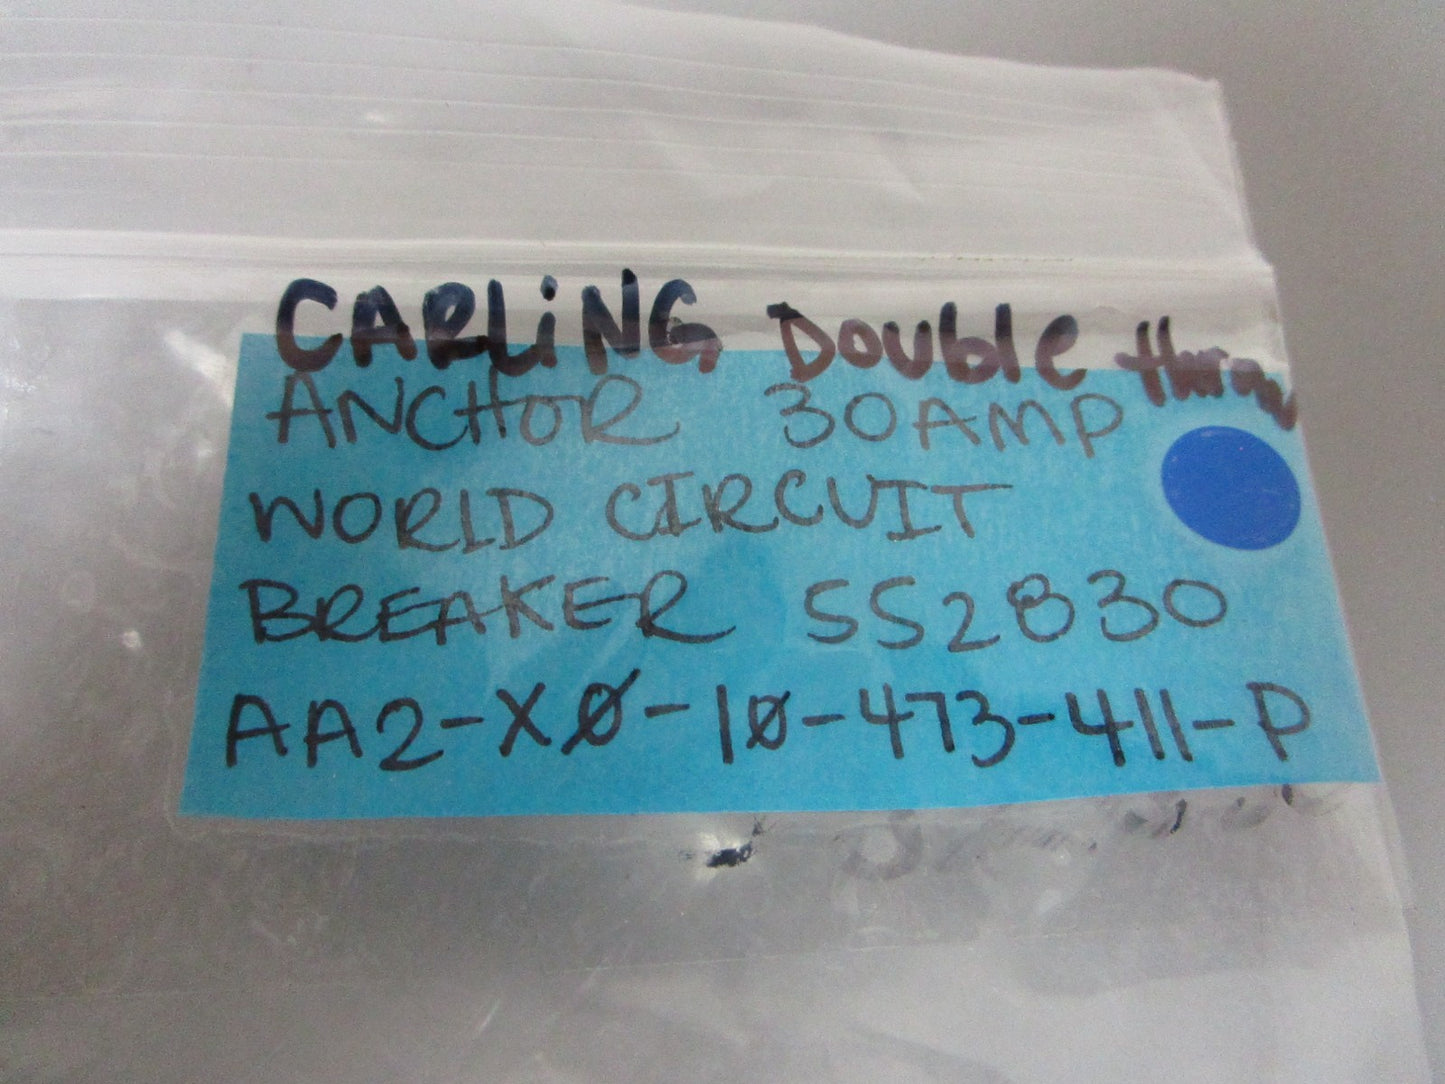 CARLiNG Double
ANCHOR 30AMP
WORLD CIRCUIT
BREAKER SS2830
AA2-X0-10-473-411-P